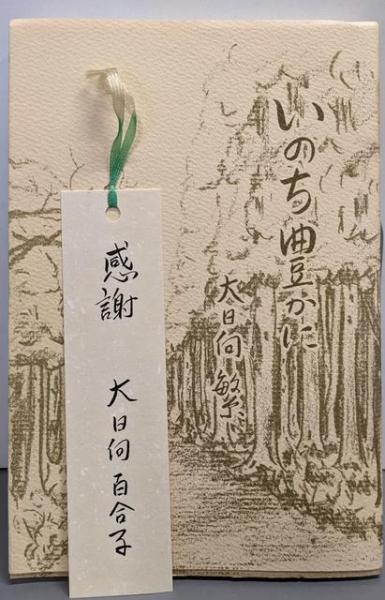 いのち豊かに
大日向 繁
感謝
大日向百合子